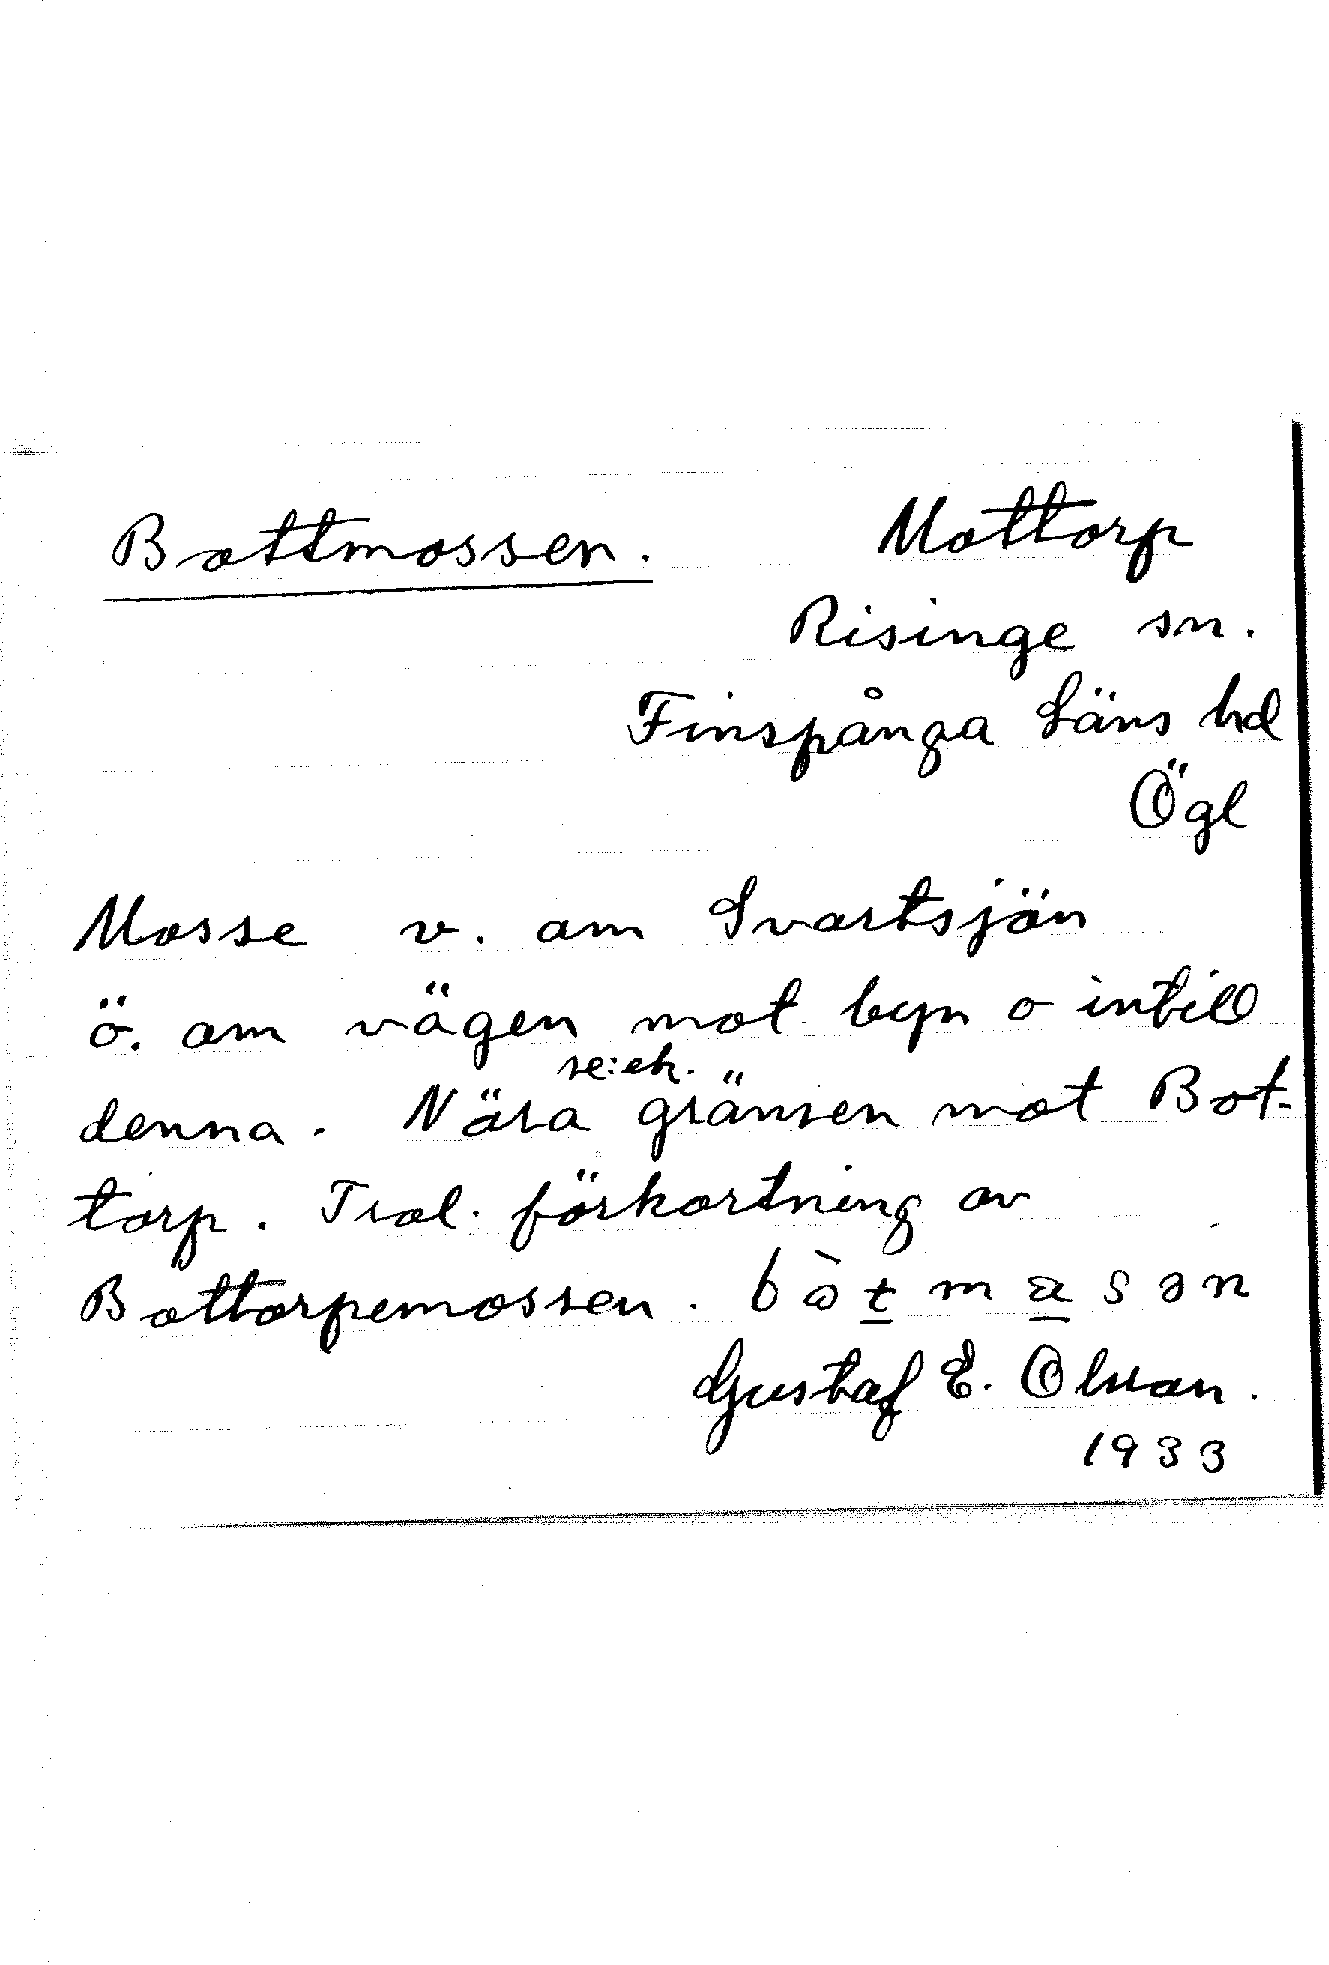 Bottmossen. Mottorp
Risinge sn.
Finspånga Läns hd
Ögl
Mosse v. om Svartsjön
ö. om vägen mot byn o intill
denna. Nära se:ek. gränsen mot Bot-
torp. Trol. förkortning av
Bottorpemossen. b ò t m a s ə n
Gustaf E. Olsson.
1933